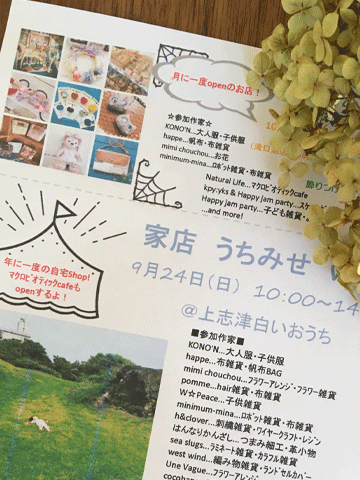 月に一度openのお店！
☆参加作家☆
KONO'N...大人服・子供服
happe...帆布・布雑貨
mimi chouchou...お花
minimum-mina...ﾛﾎﾞｯﾄ雑貨・布雑貨
Natural Life...ﾏｸﾛﾋﾞｵﾃｨｯｸcafe
kpy:yks & Happy jam party...スケー
Happy jam party...子ども雑貨・
...and more!
家店 うちみせ
9月24日(日) 10:00～14
@上志津白いおうち
年に一度の自宅Shop!
ﾏｸﾛﾋﾞｵﾃｨｯｸcafeも
openするよ！
■参加作家■
KONO'N...大人服・子供服
happe...布雑貨・帆布BAG
mimi chouchou...ﾌﾗﾜｰｱﾚﾝｼﾞ・フラワー雑貨
pomme...hair雑貨・布雑貨
W☆Peace...子供雑貨
minimum-mina...ﾛﾎﾞｯﾄ雑貨・布雑貨
h&clover...刺繍雑貨・ワイヤークラフト・レジン
はんなりかんざし...つまみ細工・革小物
sea slugs...ラミネート雑貨・カラフル雑貨
west wind...編み物雑貨・ﾗﾝﾄﾞｾﾙカバー
Une Vague...フラワーアレンジ・